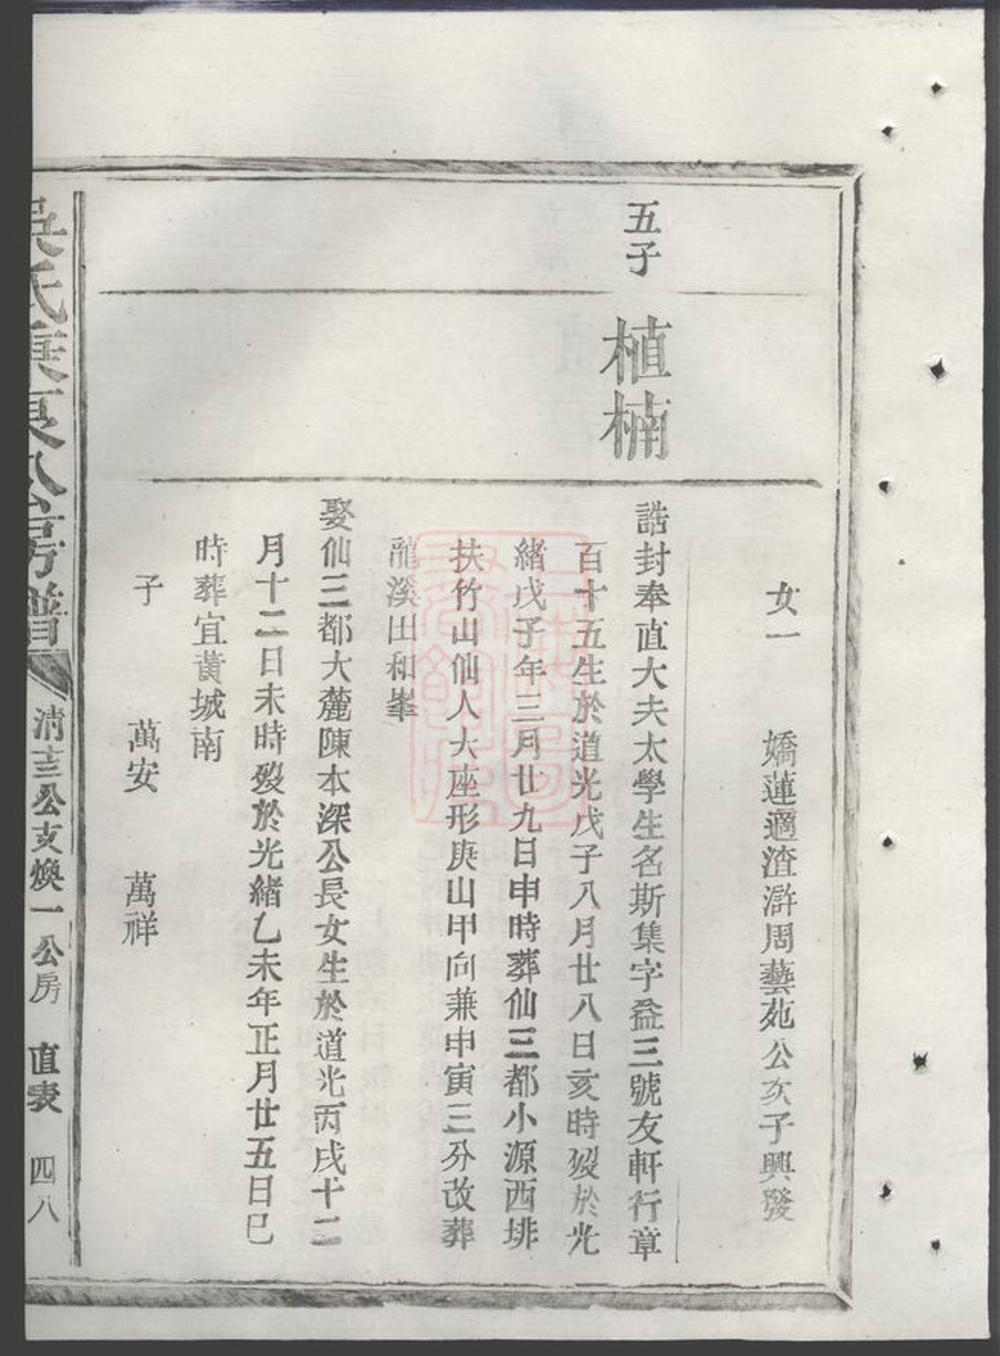 女一 嬌蓮適渣滸周藝苑公亥子興發
五子 植楠
誥封奉直大夫太學生名斯集字益三號友軒行章
百十五生於道光戊子八月廿八日亥時歿於光
緒戊子年三月廿九日申時葬仙三都小源西排
扶竹山仙人大座形庚山甲向兼申寅三分改葬
龍溪出和峯
娶仙三都大麓陳本深公長女生於道光丙戌十二
月十二日未時歿於光緒乙未年正月廿五日巳
時葬宜黃城南
子 萬安 萬祥
吳氏東公房譜 清吉公支煥一公房 直表 四八